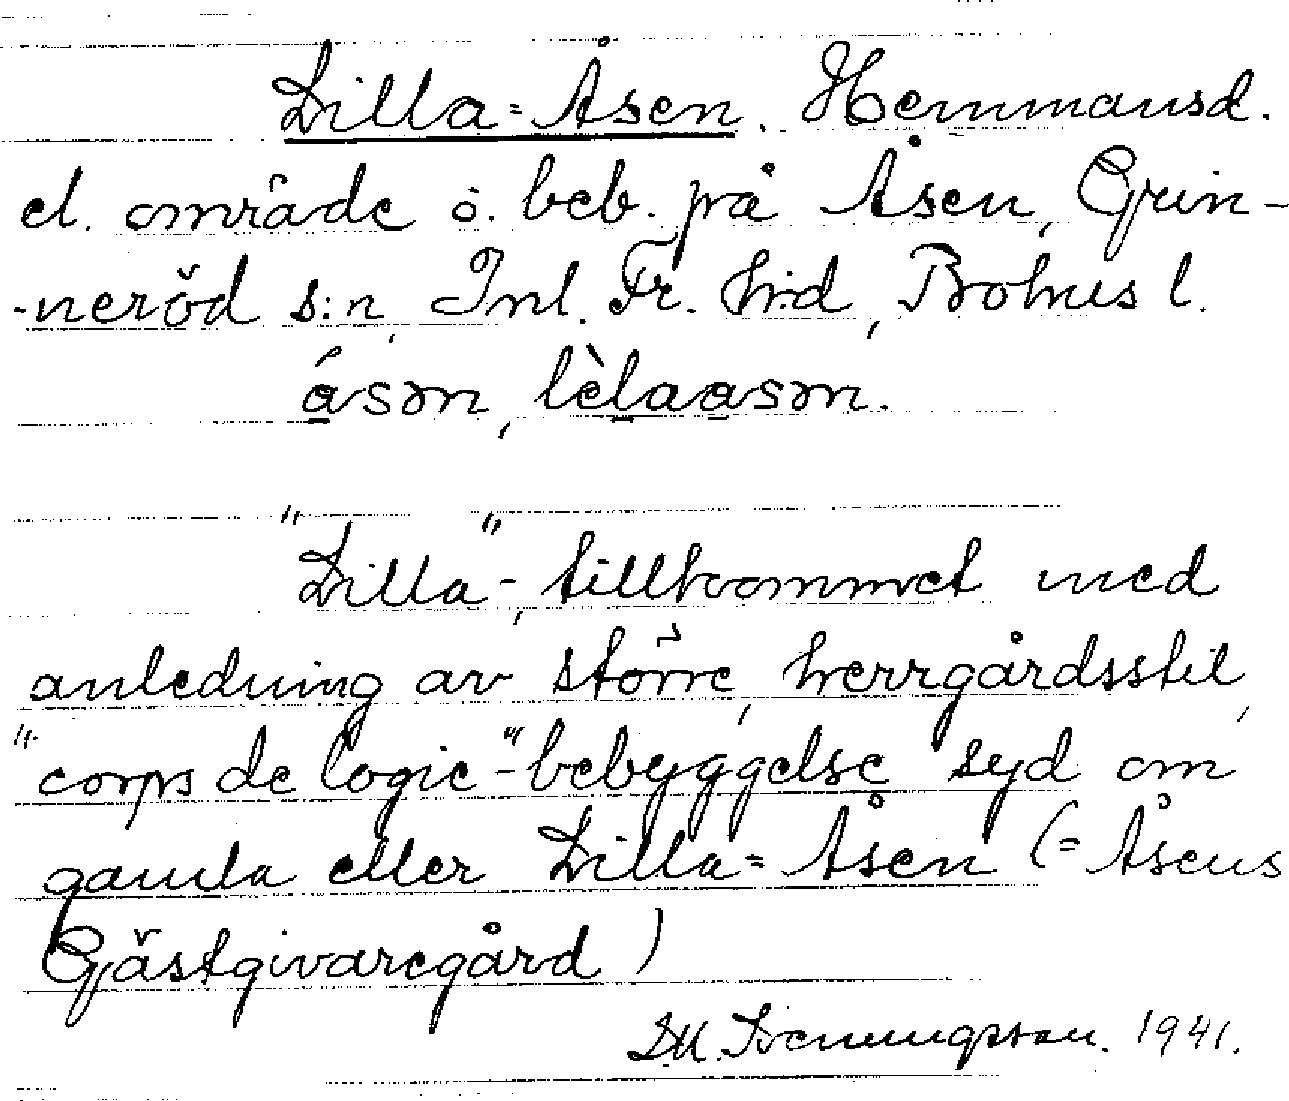 Lilla-Åsen. Hemmansd.
el. område o. beb. på Åsen, Grin-
-neröd s:n, Inl. Fr. h:d, Bohus l.
åsən, lèlaåsən.
"Lilla"-, tillkommet med
anledning av större, herrgårdsstil,
"corps de logie"-bebyggelse syd om
gamla eller Lilla-Åsen (= Åsens
Gästgivaregård)
1941.